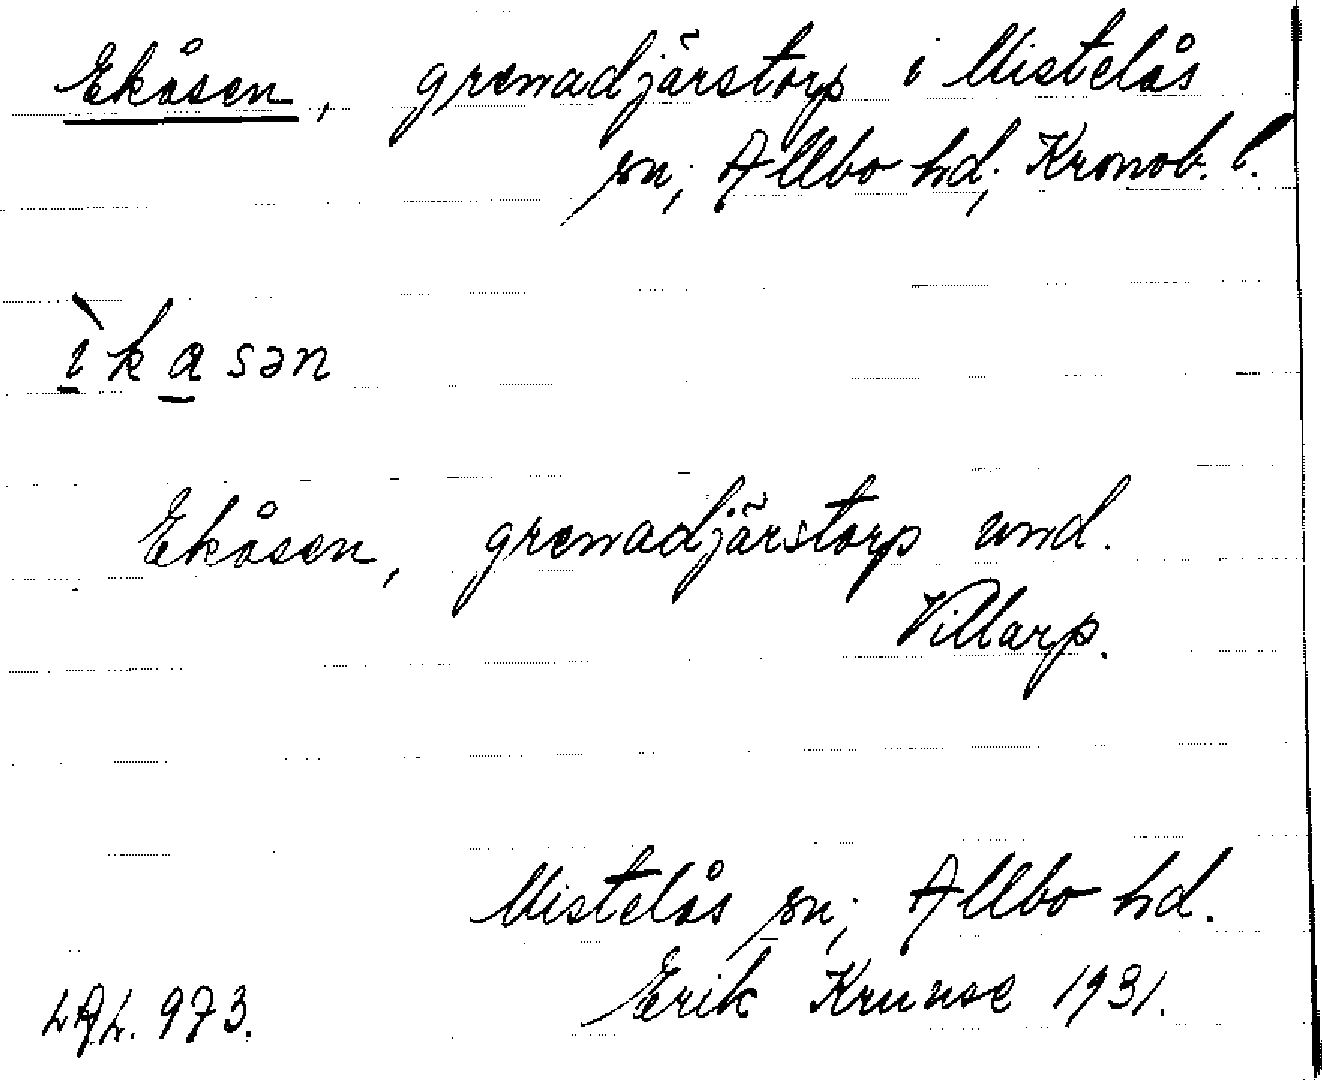 Ekåsen, grenadjärstorp i Mistelås
sn; Allbo hd; Kronob. l.
ìkasən
Ekåsen, grenadjärstorp und.
Villarp.
Mistelås sn; Allbo hd.
Erik Krunse 1931.
973.